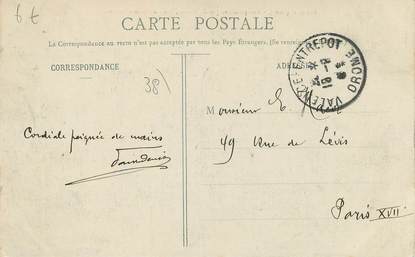 6 €
CARTE POSTALE
La Correspondance au recto n'est pas acceptée par tous les Pays Étrangers. (Se renseigner
CORRESPONDANCE
ADRESSE
38
VALENCE-ENTREPOT
DROME
Monsieur E.
Cordiale poignée de mains
49 Rue de Lévis
Paris XVII